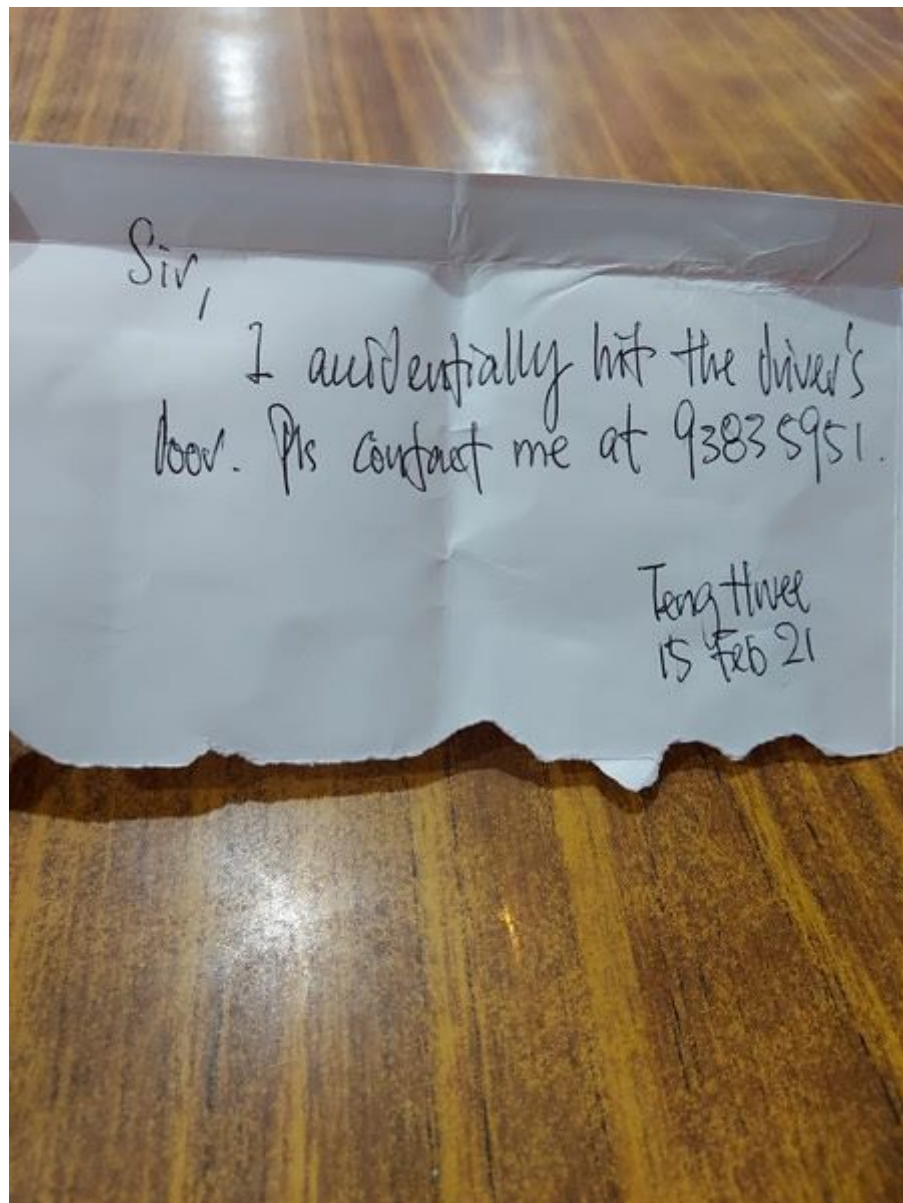 Sir,
I accidentially hit the driver's
door. Pls contact me at 93835951.
Teng Hwee
15 Feb 21